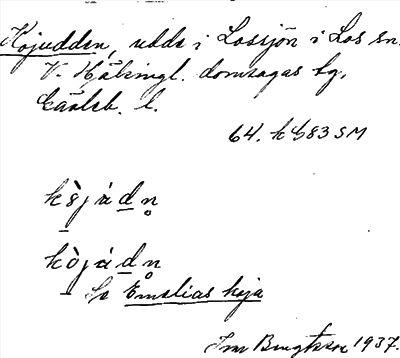 Kojudden, udde i Lossjön i Los sn.
V. Hälsingl. domsagas tg,
Gävleb. l.
64. h 683 SM
kòjùdn̥
kòjùdn̥
Se Emelias koja
Im Bengtsson 1937.